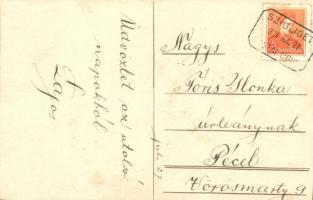 Üdvözlet az utolsó
napokból
Lajos
juli 27.
SZIGLIGET
Nagys
Póris Ilonka
úrleánynak
Pécel
Vörösmarty 9